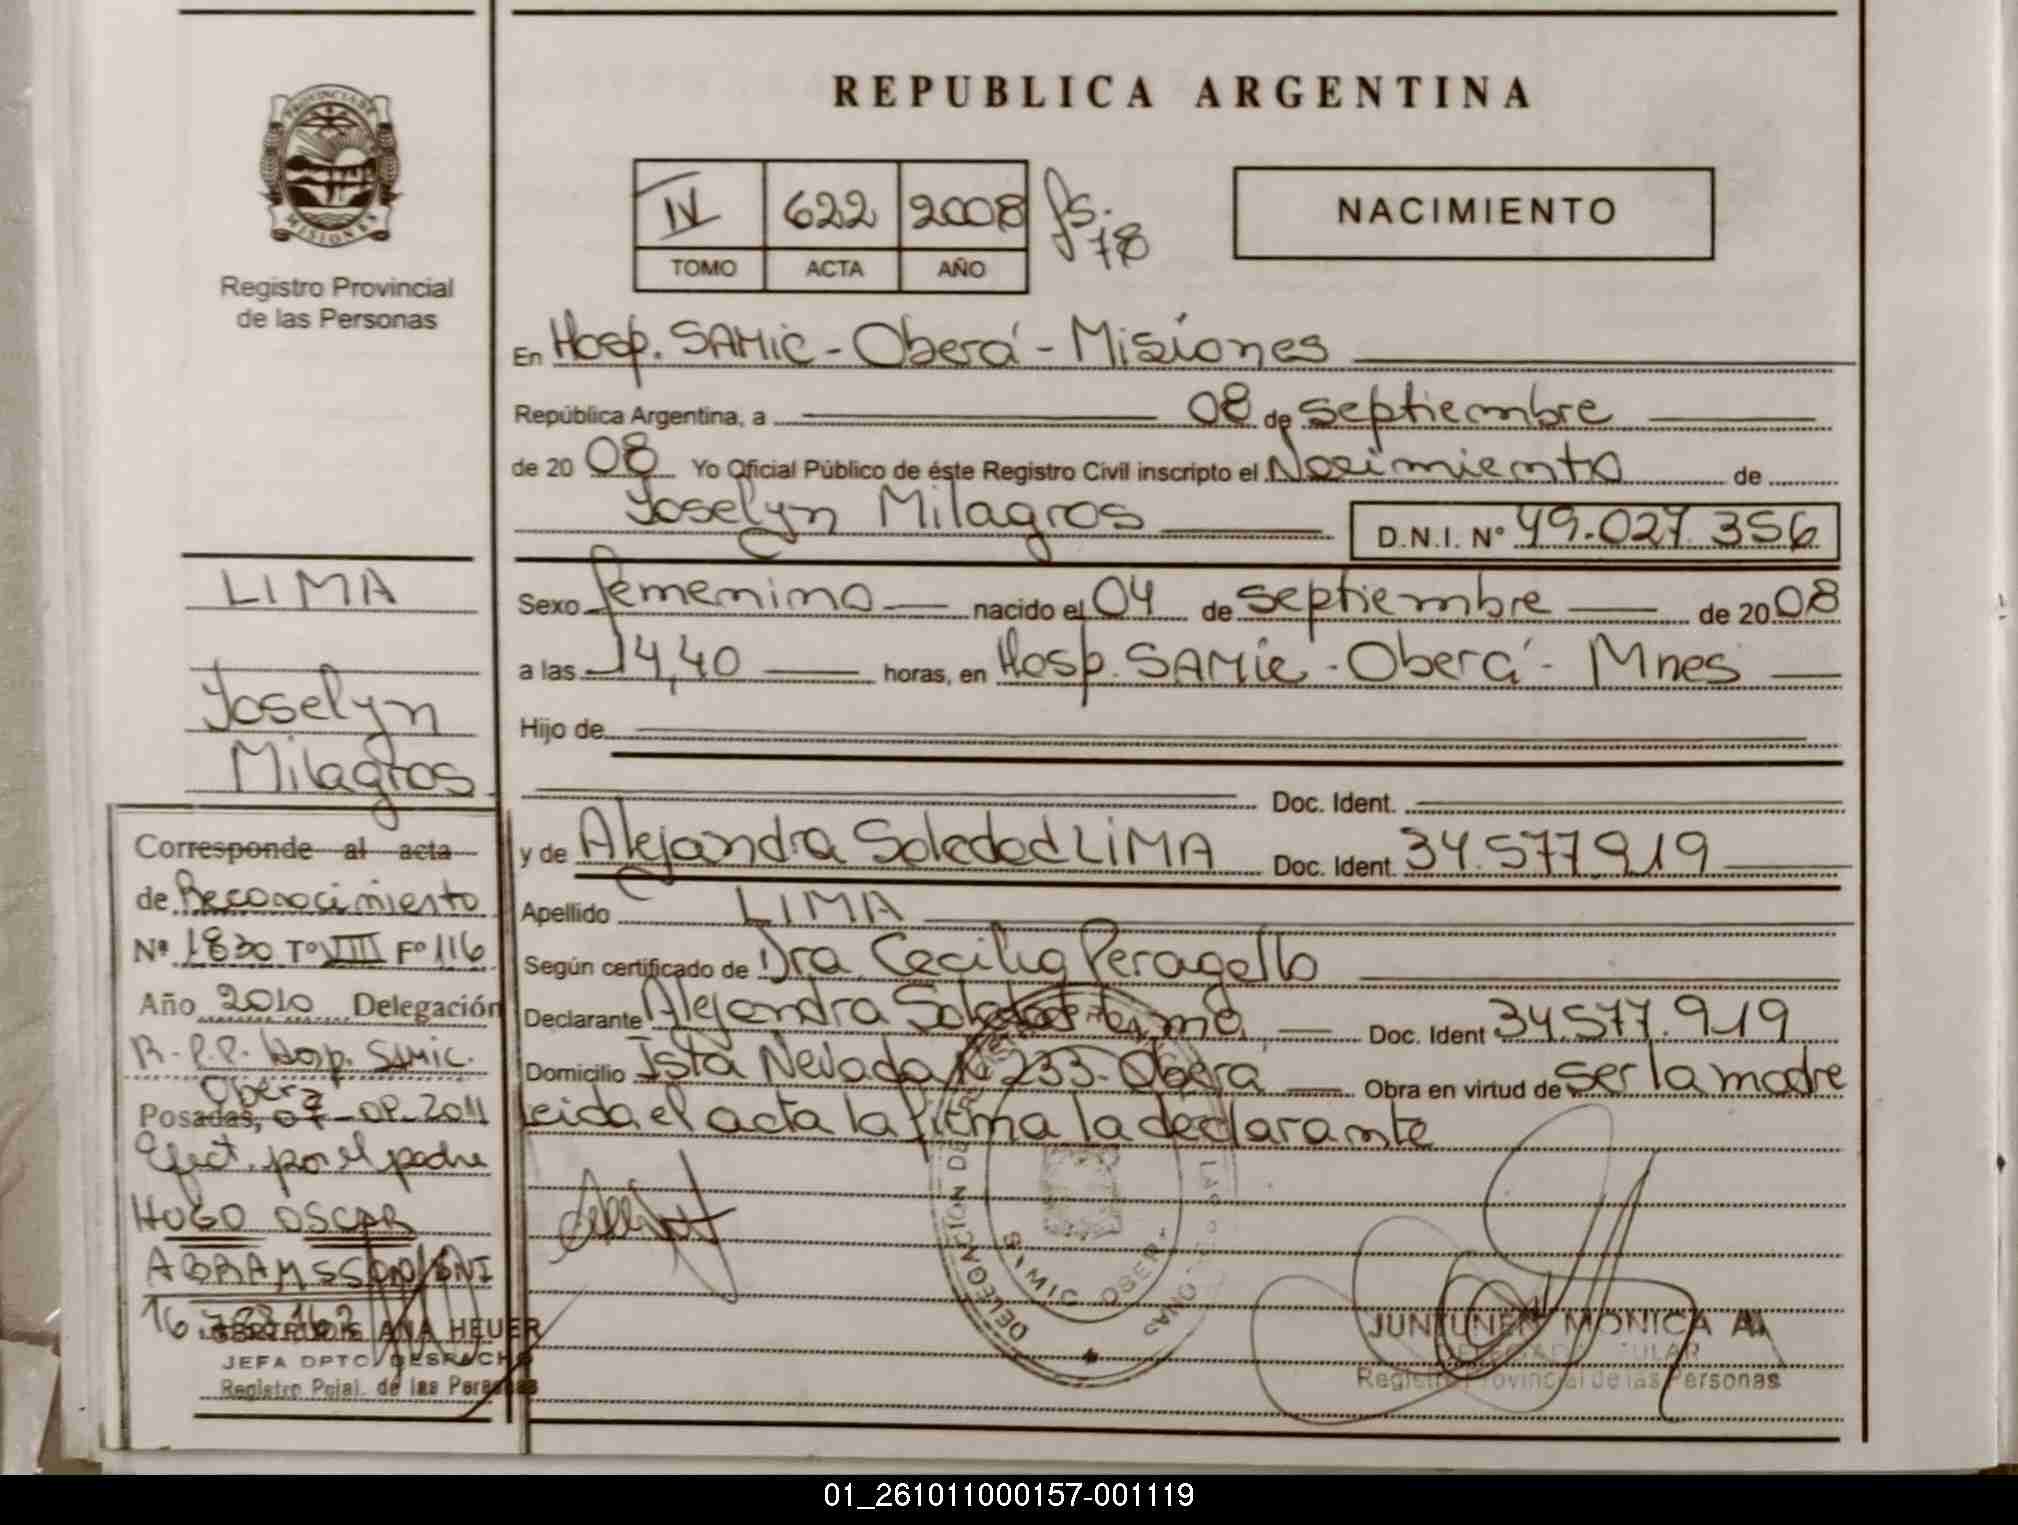 REPUBLICA ARGENTINA
PROVINCIA DE
MISIONES
Registro Provincial
de las Personas
IV 622 2008 fs. 78
TOMO ACTA AÑO
NACIMIENTO
En Hosp. SAMIC - Oberá - Misiones
República Argentina, a 08 de septiembre
de 2008 Yo Oficial Público de éste Registro Civil inscripto el Nacimiento de
Joselyn Milagros D.N.I. N° 49.027.356
Sexo femenino nacido el 04 de septiembre de 2008
a las 14,40 horas, en Hosp. SAMIC - Oberá - Mnes
Hijo de
Doc. Ident.
y de Alejandra Soledad LIMA Doc. Ident. 34.577.919
Apellido LIMA
Según certificado de Dra. Cecilia Peragallo
Declarante Alejandra Soledad Lima Doc. Ident 34.577.919
Domicilio Ista Nevada N° 233 - Oberá Obra en virtud de ser la madre
leida el acta la firma la declarante
LIMA
Joselyn
Milagros
Corresponde al acta
de Reconocimiento
Nº 1830 Tº VIII Fº 116
Año 2010 Delegación
R.P.P. Hosp. SAMIC.
Oberá
Posadas, 07-09-2011
Efect. por el padre
HUGO OSCAR
ABRAMSSON DNI
16.
GERTRUDIS ANA HEUER
JEFA DPTO. DESPACHO
Registro Pcial. de las Personas
DELEGACION DE
SAMIC OBERA
JUNTUNEN MONICA A.
Registro Provincial de las Personas
01_261011000157-001119